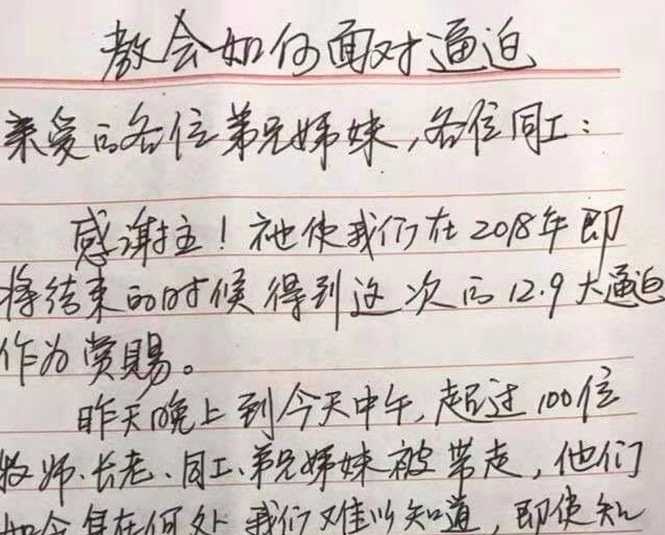 教会如何面对逼迫
亲爱的各位弟兄姊妹，各位同工：
感谢主！祂使我们在2018年即
将结束的时候得到这次的12.9大逼迫
作为赏赐。
昨天晚上到今天中午，超过100位
牧师、长老、同工、弟兄姊妹被带走，他们
如今身在何处我们难以知道，即使知